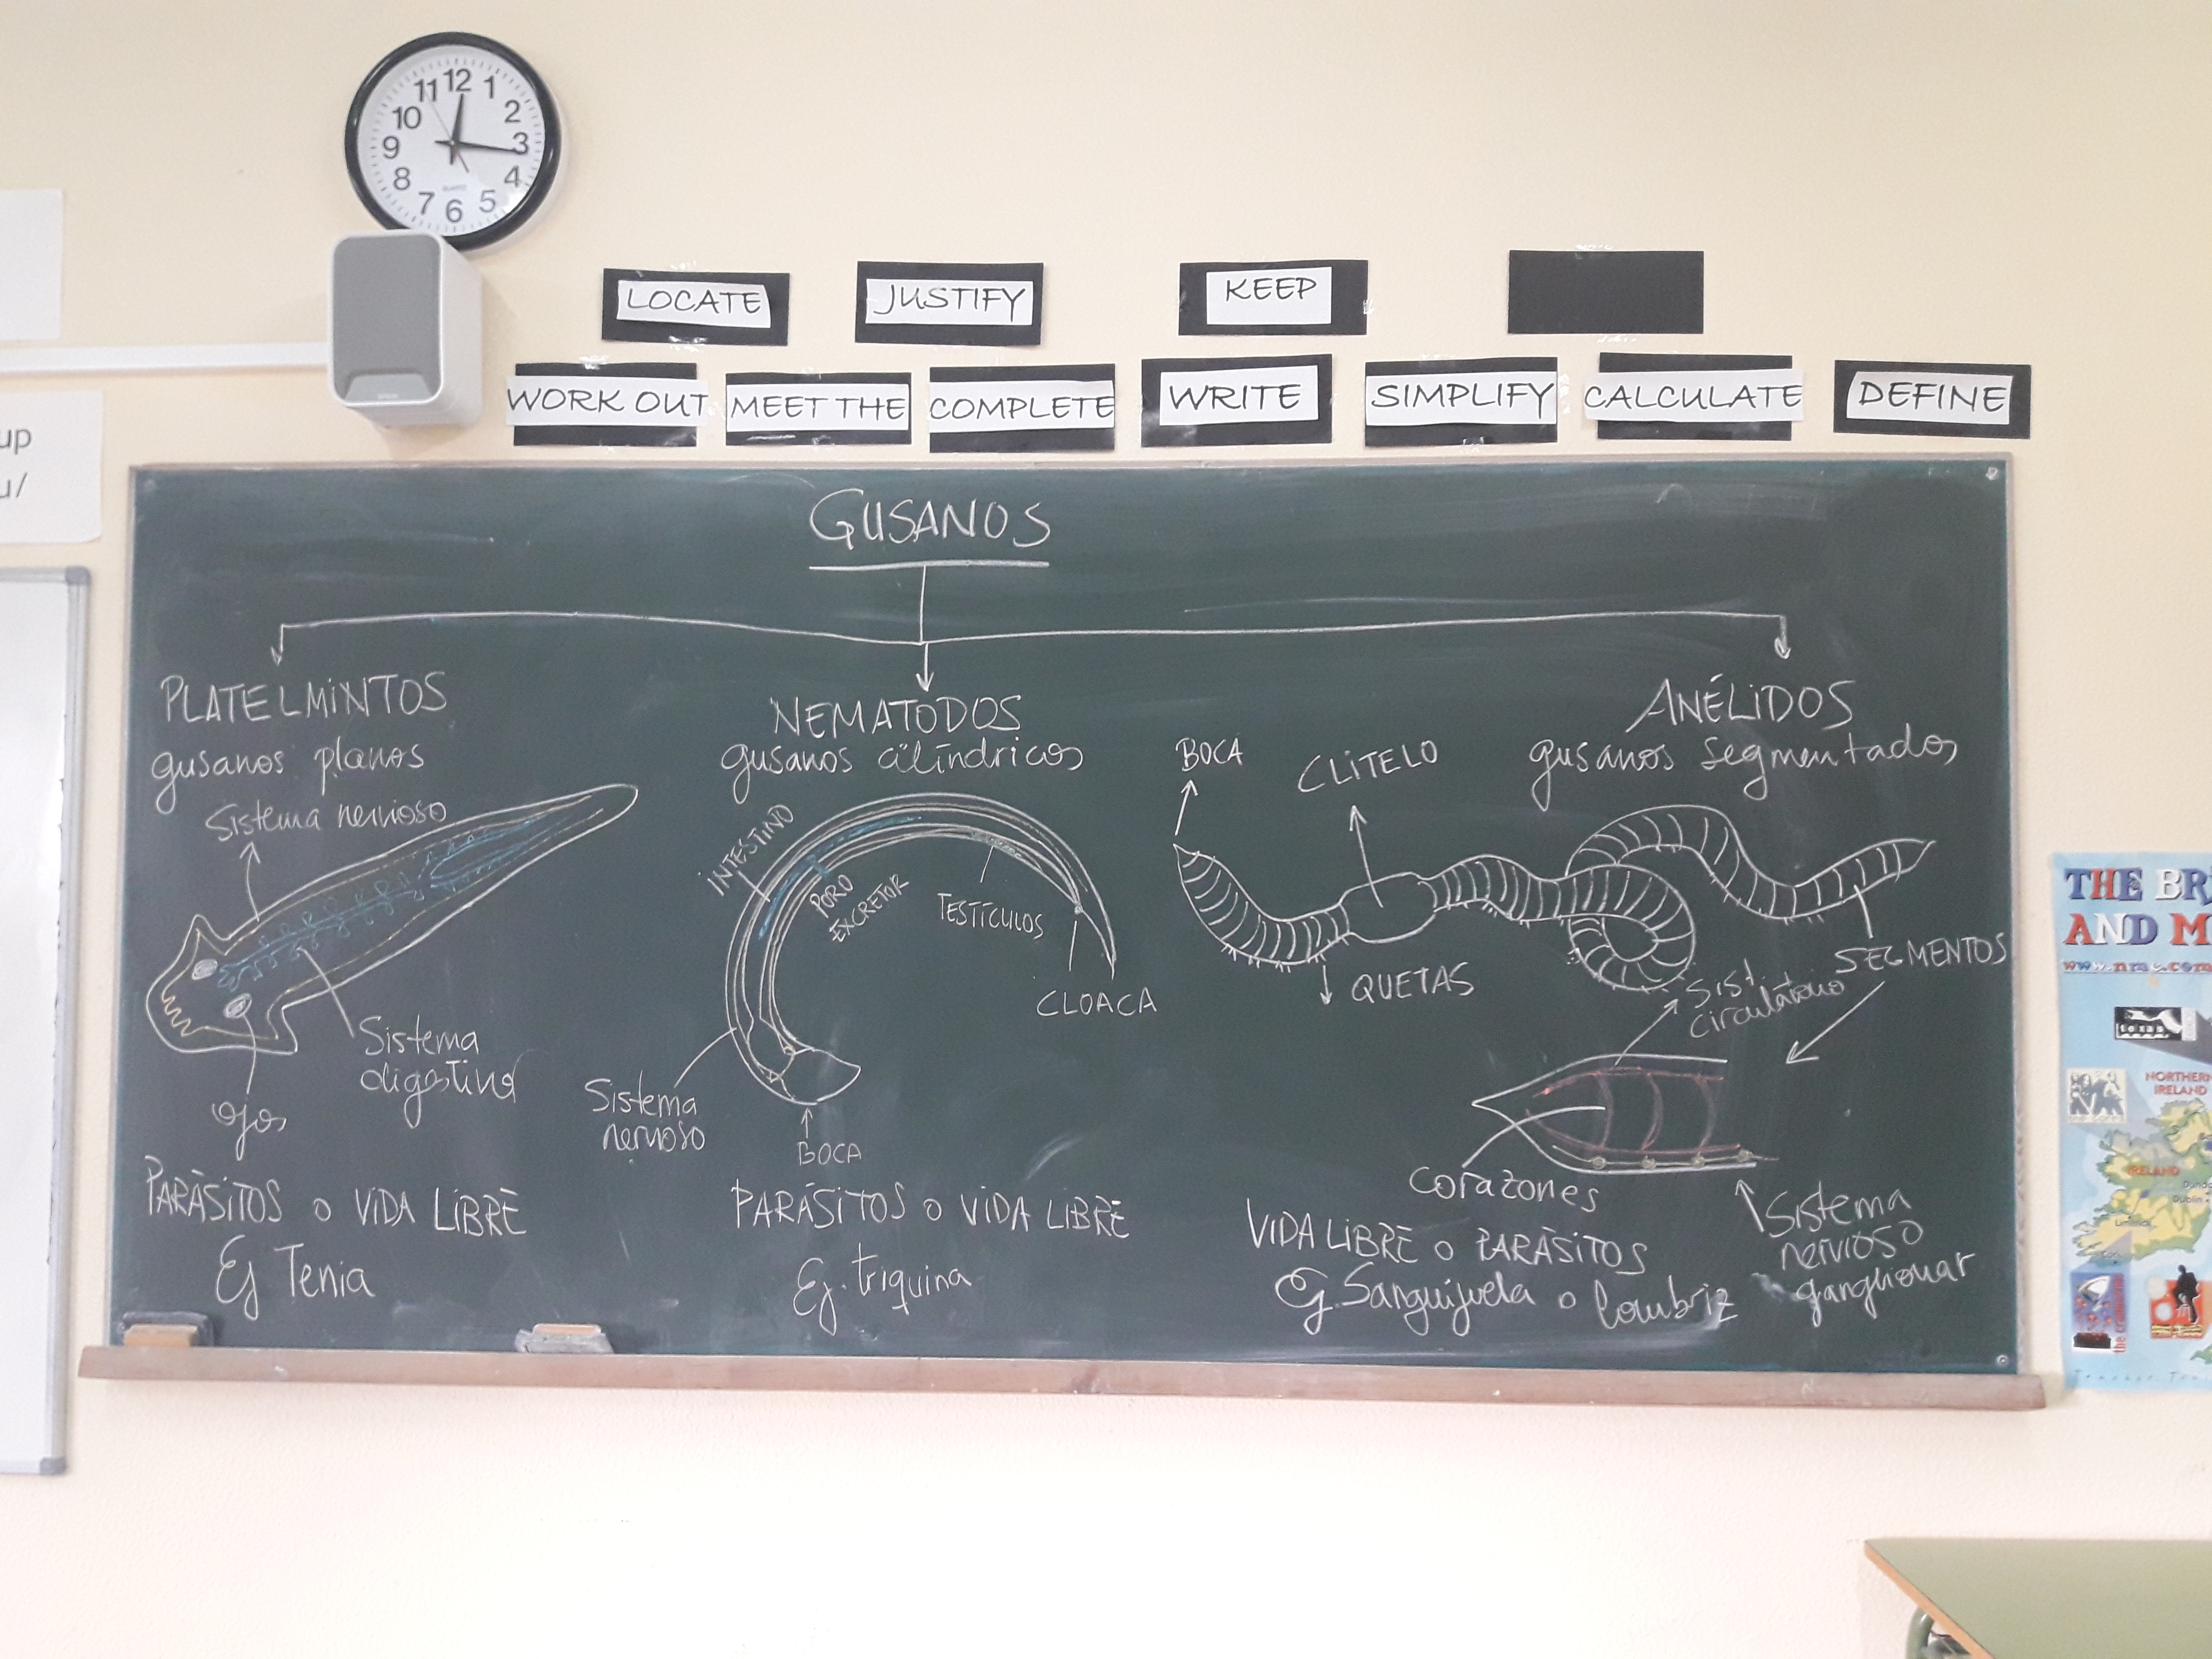 11 12 1
10 2
9 3
8 4
7 6 5
QUARTZ
EPSON
up
u/
LOCATE
JUSTIFY
KEEP
WORK OUT
MEET THE
COMPLETE
WRITE
SIMPLIFY
CALCULATE
DEFINE
GUSANOS
PLATELMINTOS
gusanos planos
Sistema nervioso
Sistema
digestivo
ojos
PARÁSITOS o VIDA LIBRE
Ej Tenia
NEMATODOS
gusanos cilíndricos
INTESTINO
PORO
EXCRETOR
TESTÍCULOS
CLOACA
Sistema
nervioso
BOCA
PARÁSITOS o VIDA LIBRE
Ej. triquina
ANÉLIDOS
gusanos segmentados
BOCA
CLITELO
QUETAS
SEGMENTOS
Sist.
circulatorio
corazones
Sistema
nervioso
ganglionar
VIDA LIBRE o PARÁSITOS
Ej. Sanguijuela o lombriz
THE BR
AND M
NORTHERN
IRELAND
IRELAND
Dublin
Limerick